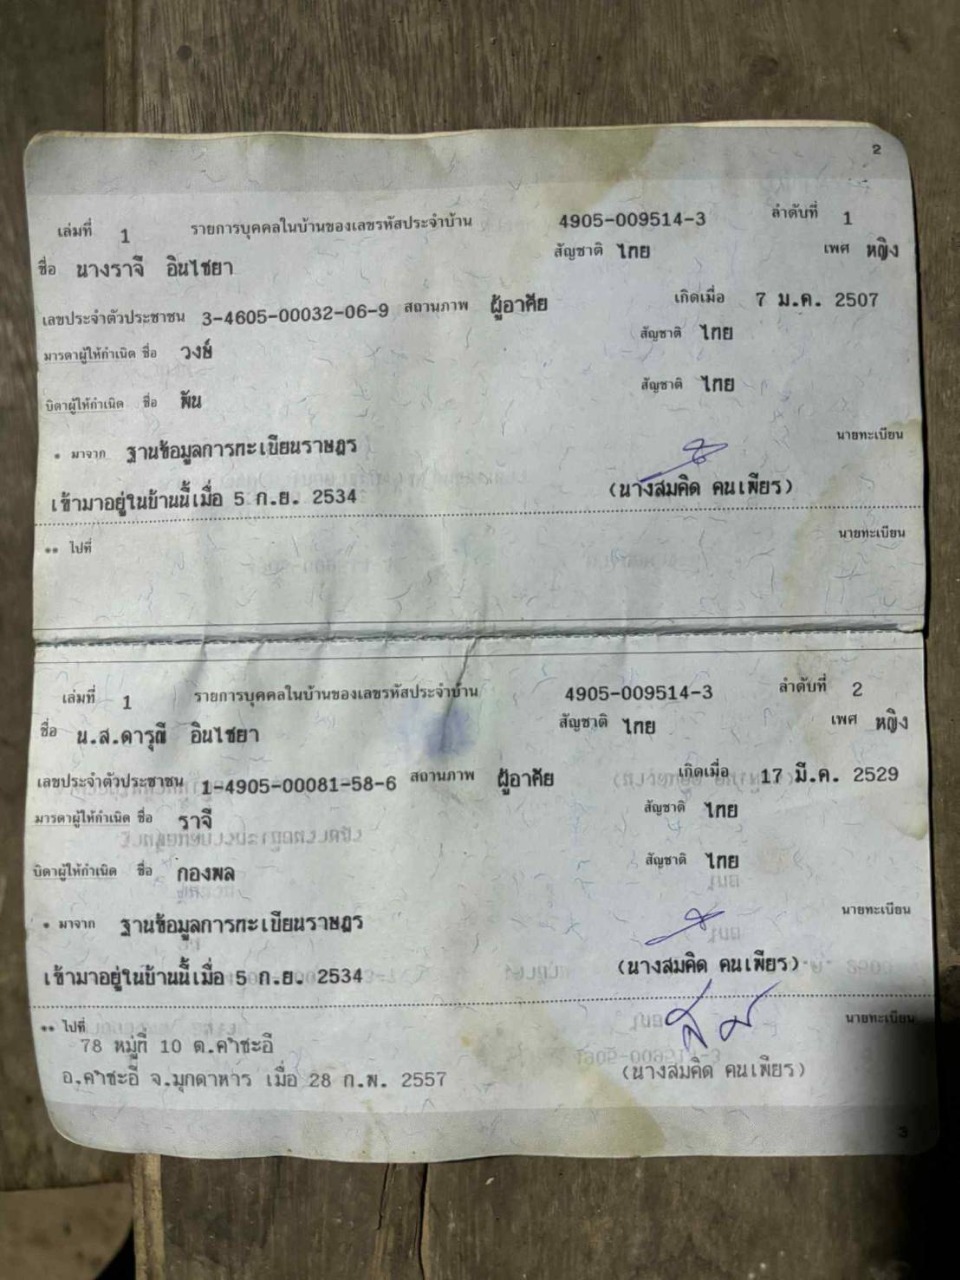 2
เล่มที่ 1 รายการบุคคลในบ้านของเลขรหัสประจำบ้าน 4905-009514-3 ลำดับที่ 1
ชื่อ นางราจี อินไชยา สัญชาติ ไทย เพศ หญิง
เลขประจำตัวประชาชน 3-4605-00032-06-9 สถานภาพ ผู้อาศัย เกิดเมื่อ 7 ม.ค. 2507
มารดาผู้ให้กำเนิด ชื่อ วงษ์ สัญชาติ ไทย
บิดาผู้ให้กำเนิด ชื่อ พัน สัญชาติ ไทย
* มาจาก ฐานข้อมูลการทะเบียนราษฎร นายทะเบียน
เข้ามาอยู่ในบ้านนี้เมื่อ 5 ก.ย. 2534 (นางสมคิด คนเพียร)
** ไปที่ นายทะเบียน
เล่มที่ 1 รายการบุคคลในบ้านของเลขรหัสประจำบ้าน 4905-009514-3 ลำดับที่ 2
ชื่อ น.ส.ดารุณี อินไชยา สัญชาติ ไทย เพศ หญิง
เลขประจำตัวประชาชน 1-4905-00081-58-6 สถานภาพ ผู้อาศัย เกิดเมื่อ 17 มี.ค. 2529
มารดาผู้ให้กำเนิด ชื่อ ราจี สัญชาติ ไทย
บิดาผู้ให้กำเนิด ชื่อ กองพล สัญชาติ ไทย
* มาจาก ฐานข้อมูลการทะเบียนราษฎร นายทะเบียน
เข้ามาอยู่ในบ้านนี้เมื่อ 5 ก.ย. 2534 (นางสมคิด คนเพียร)
** ไปที่ นายทะเบียน
78 หมู่ที่ 10 ต.คำชะอี
อ.คำชะอี จ.มุกดาหาร เมื่อ 28 ก.พ. 2557 (นางสมคิด คนเพียร)
3